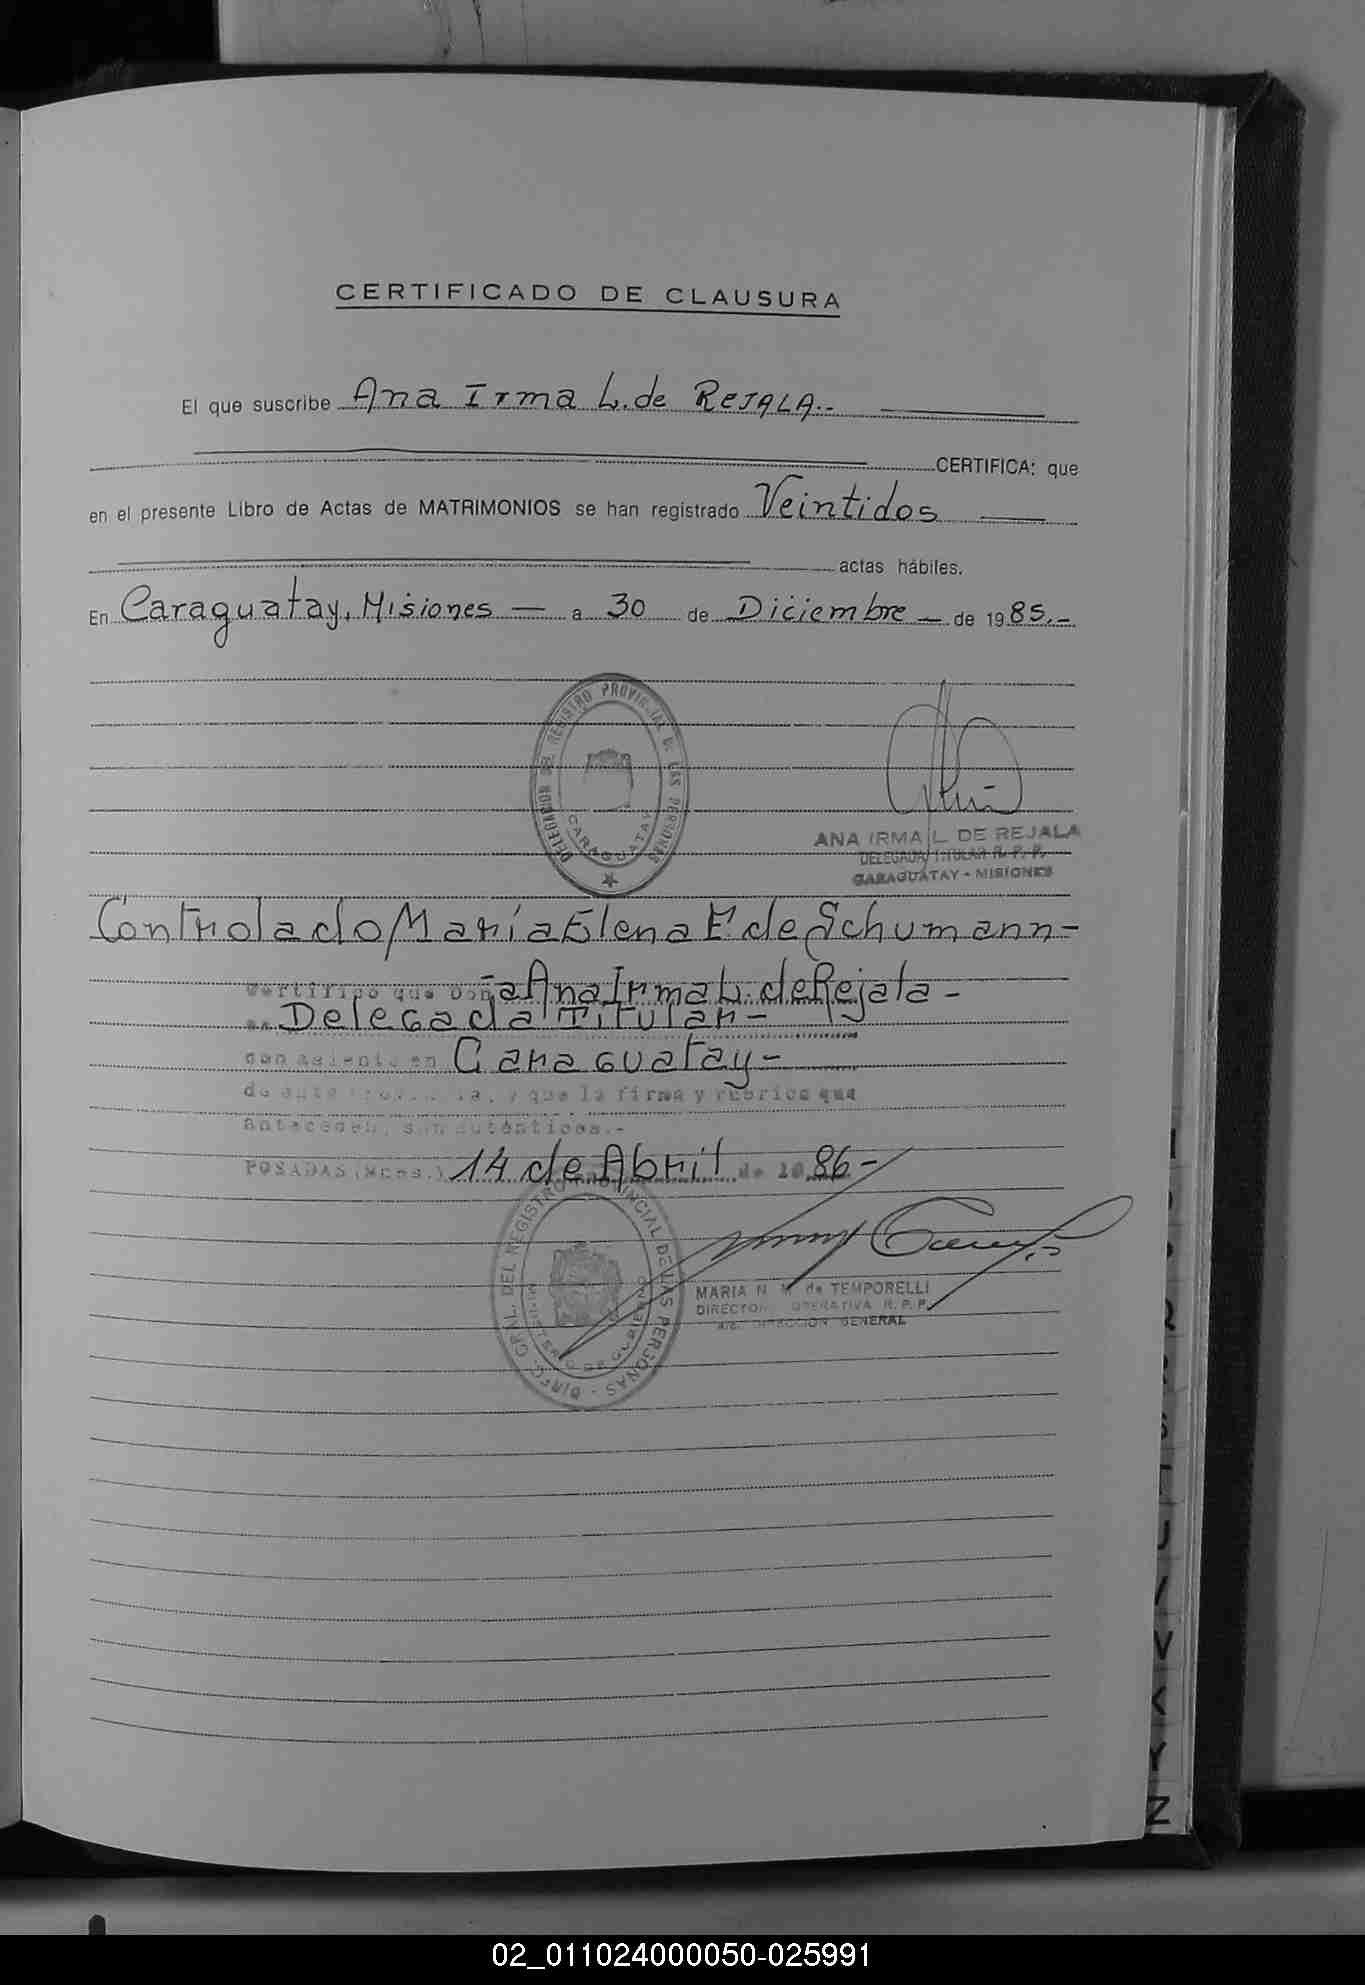 CERTIFICADO DE CLAUSURA
El que suscribe Ana Irma L. de REJALA.-
CERTIFICA: que
en el presente Libro de Actas de MATRIMONIOS se han registrado Veintidos
actas hábiles.
En Caraguatay, Misiones — a 30 de Diciembre — de 1985.-
DELEGACION DEL REGISTRO PROVINCIAL D. LAS PERSONAS
CARAGUATAY
ANA IRMA L. DE REJALA
DELEGADA TITULAR R. P. P.
CARAGUATAY - MISIONES
Controlado María Elena F. de Schumann-
Certifico que Doña Ana Irma L. de Rejala-
es Delegada Titular-
con asiento en Caraguatay-
de esta Provincia, y que la firma y rubrica que
anteceden, son auténticas.-
POSADAS (Mnes.) 14 de Abril de 1986-
DIREC. GRAL. DEL REGISTRO PROVINCIAL DE LAS PERSONAS
MINISTERIO DE GOBIERNO
MARIA N. M. de TEMPORELLI
DIRECTORA OPERATIVA R. P. P.
A/C. DIRECCION GENERAL
U
V
X
Y
Z
02_011024000050-025991